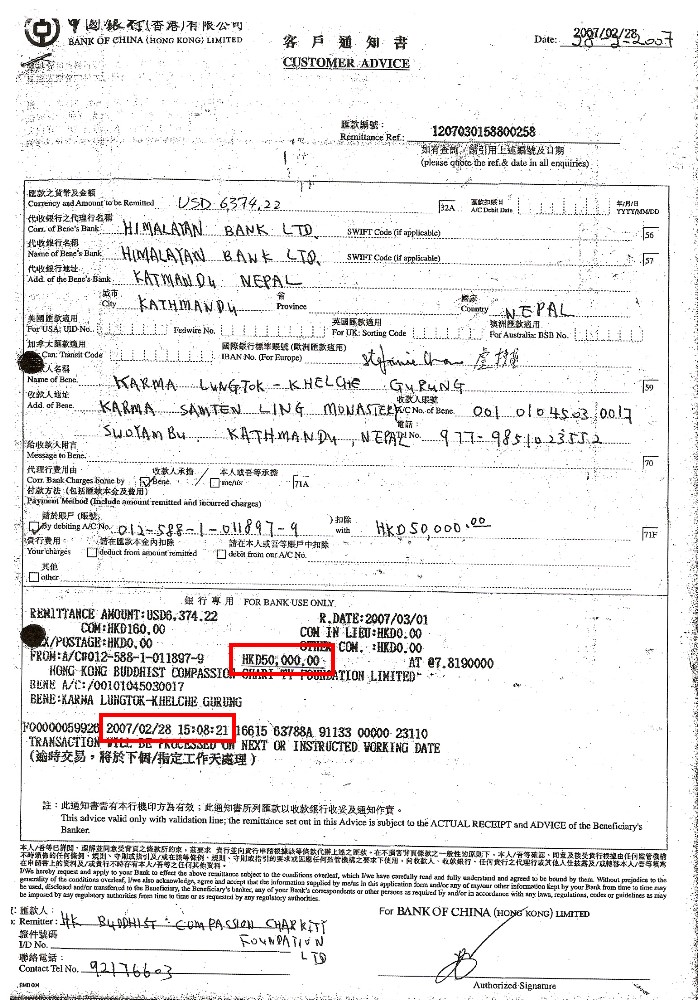 中國銀行(香港)有限公司
BANK OF CHINA (HONG KONG) LIMITED
客戶通知書
CUSTOMER ADVICE
Date: 2007/02/28
28-2-2007
匯款編號：
Remittance Ref.: 1207030158800258
如有查詢，請引用上述編號及日期
(please quote the ref.& date in all enquiries)
匯款之貨幣及金額
Currency and Amount to be Remitted USD 6374.22 32A 匯款扣賬日 A/C Debit Date 年/月/日 YYYY/MM/DD
代收銀行之代理行名稱
Corr. of Bene's Bank HIMALAYAN BANK LTD. SWIFT Code (if applicable) 56
代收銀行名稱
Name of Bene's Bank HIMALAYAN BANK LTD. SWIFT Code (if applicable) 57
代收銀行地址
Add. of the Bene's Bank KATMANDU NEPAL
城市 省 國家
City KATHMANDU Province Country NEPAL
美國匯款適用 英國匯款適用 澳洲匯款適用
For USA: UID No. Fedwire No. For UK: Sorting Code For Australia: BSB No.
加拿大匯款適用 國際銀行標準賬號(歐洲匯款適用)
Can: Transit Code IBAN No. (For Europe)
人名稱
Name of Bene. KARMA LUNGTOK-KHELCHE GURUNG 59
收款人地址 收款人賬號
Add. of Bene. KARMA SAMTEN LING MONASTERY A/C No. of Bene. 001 0104503 0017
電話：
SWOYAMBU, KATHMANDU, NEPAL Tel No. 977-9851023552
給收款人附言
Message to Bene. 70
代理行費用由 收款人承擔 本人或吾等承擔
Corr. Bank Charges borne by Bene. me/us 71A
付款方法 (包括匯款本金及費用)
Payment Method (Include amount remitted and incurred charges)
請於賬戶 (賬號) 扣除
By debiting A/C No. 012-588-1-011897-9 with HKD50,000.00 71F
貴行費用： 請在匯款本金內扣除 請在本人或吾等賬戶中扣除
Your charges deduct from amount remitted debit from our A/C No.
其他
other
銀行專用 FOR BANK USE ONLY
REMITTANCE AMOUNT:USD6,374.22 R.DATE:2007/03/01
COM:HKD160.00 COM IN LIEU:HKD0.00
EX/POSTAGE:HKD0.00 OTHER COM. :HKD0.00
FROM:A/C#012-588-1-011897-9 HKD50,000.00 AT @7.8190000
HONG KONG BUDDHIST COMPASSION CHARITY FOUNDATION LIMITED
BENE A/C:/00101045030017
BENE:KARMA LUNGTOK-KHELCHE GURUNG
2007/02/28 15:08:21 16615 63788A 91133 00000 23110
TRANSACTION WILL BE PROCESSED ON NEXT OR INSTRUCTED WORKING DATE
(逾時交易，將於下個/指定工作天處理)
註：此通知書需有本行機印方為有效；此通知書所列匯款以收款銀行收妥及通知作實。
This advice valid only with validation line; the remittance set out in this Advice is subject to the ACTUAL RECEIPT and ADVICE of the Beneficiary's
Banker.
I/We hereby request and apply to your Bank to effect the above remittance subject to the conditions overleaf, which I/we have carefully read and fully understood and agreed to be bound by them. Without prejudice to the
generality of the conditions overleaf, I/we also acknowledge, agree and accept that the information supplied by me/us in this application form and/or any of my/our other information kept by your Bank from time to time may
be used, disclosed and/or transferred to the Beneficiary, the Beneficiary's banker, any of your Bank's correspondents or other persons as required by and/or in accordance with any laws, regulations, codes or guidelines as may
be imposed by any regulatory authorities from time to time or as requested by any regulatory authorities.
匯款人：
Remitter: HK BUDDHIST COMPASSION CHARITY
FOUNDATION
LTD
For BANK OF CHINA (HONG KONG) LIMITED
證件號碼
I/D No.
聯絡電話：
Contact Tel No. 92176603
Authorized Signature